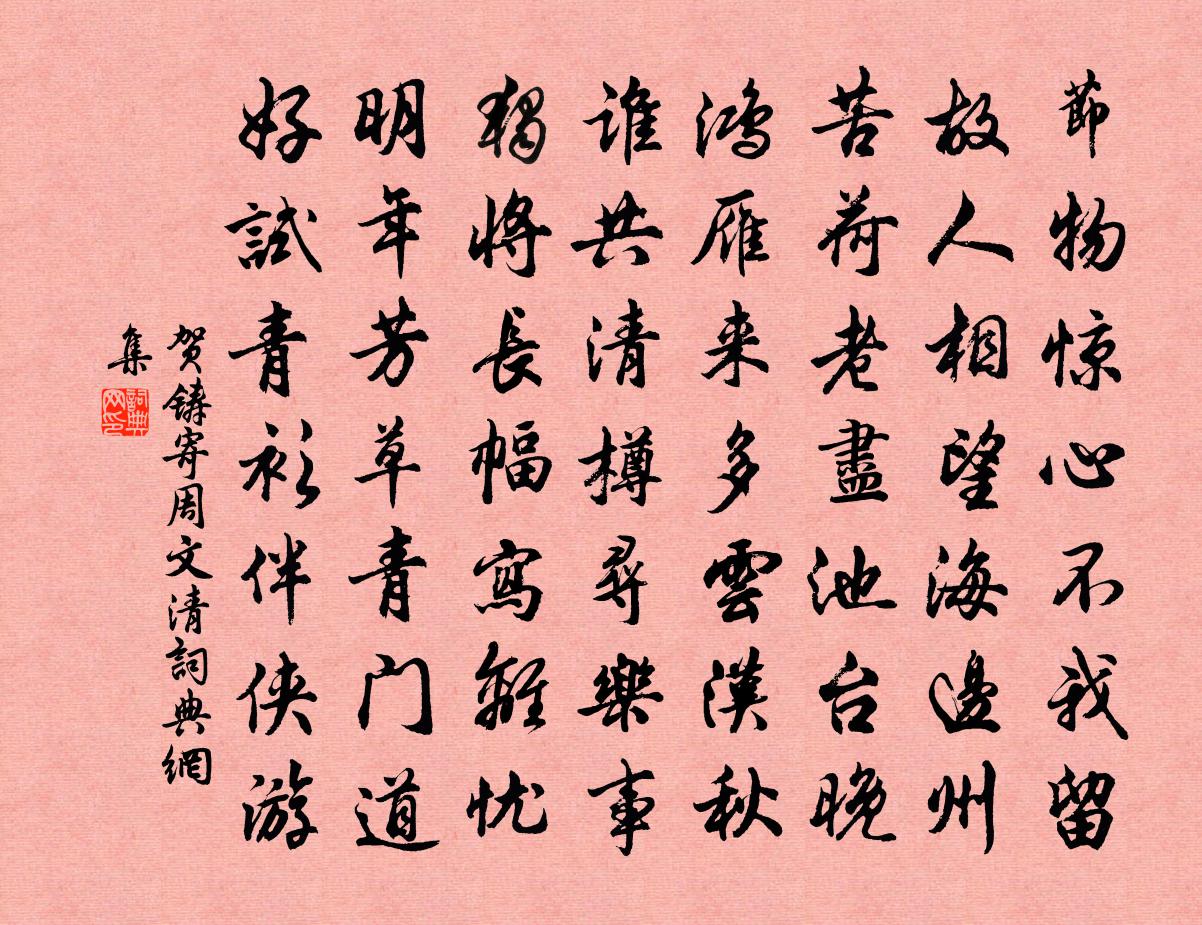 節物惊心不我留
故人相望海邊州
苦荷老盡池台晚
鸿雁来多雲漢秋
谁共清樽尋樂事
獨将長幅寫離忧
明年芳草青门道
好試青衫伴侠游
贺鑄寄周文清詞典網
集
詞典网印